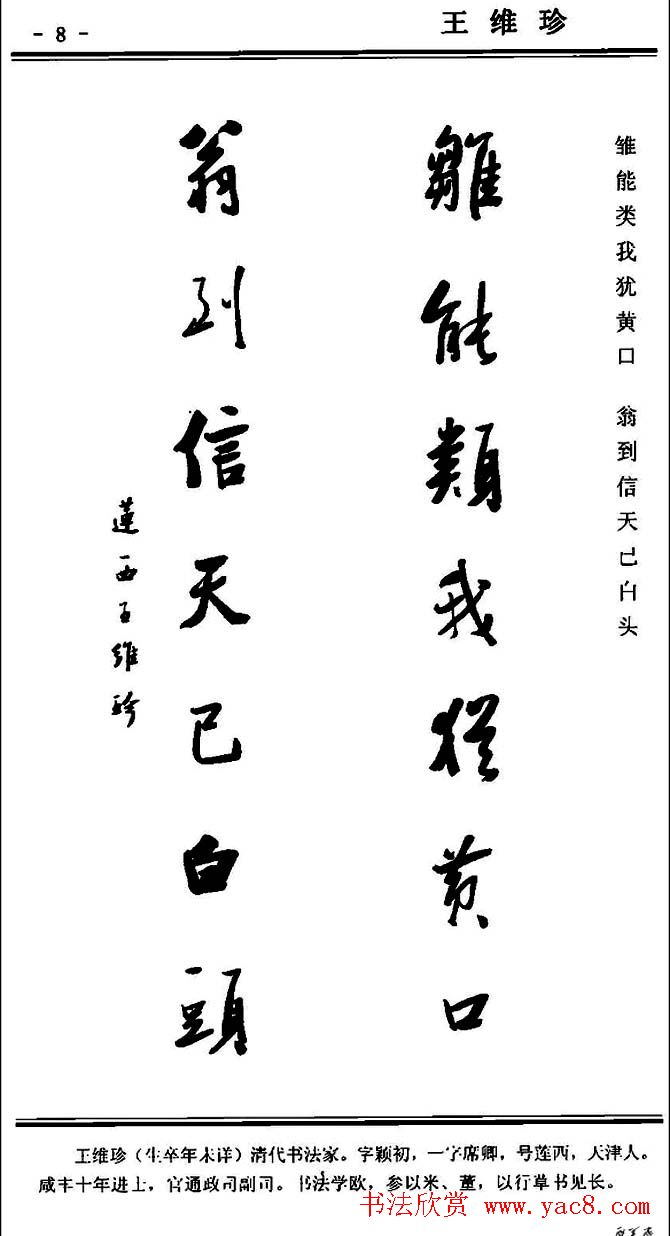 - 8 -
王维珍
雏能类我犹黄口 翁到信天已白头
雛能類我猶黄口
翁到信天已白頭
蓮西王維珍
王维珍（生卒年未详）清代书法家。字颖初，一字席卿，号莲西，天津人。
咸丰十年进士，官通政司副司。书法学欧，参以米、董，以行草书见长。
书法欣赏 www.yac8.com